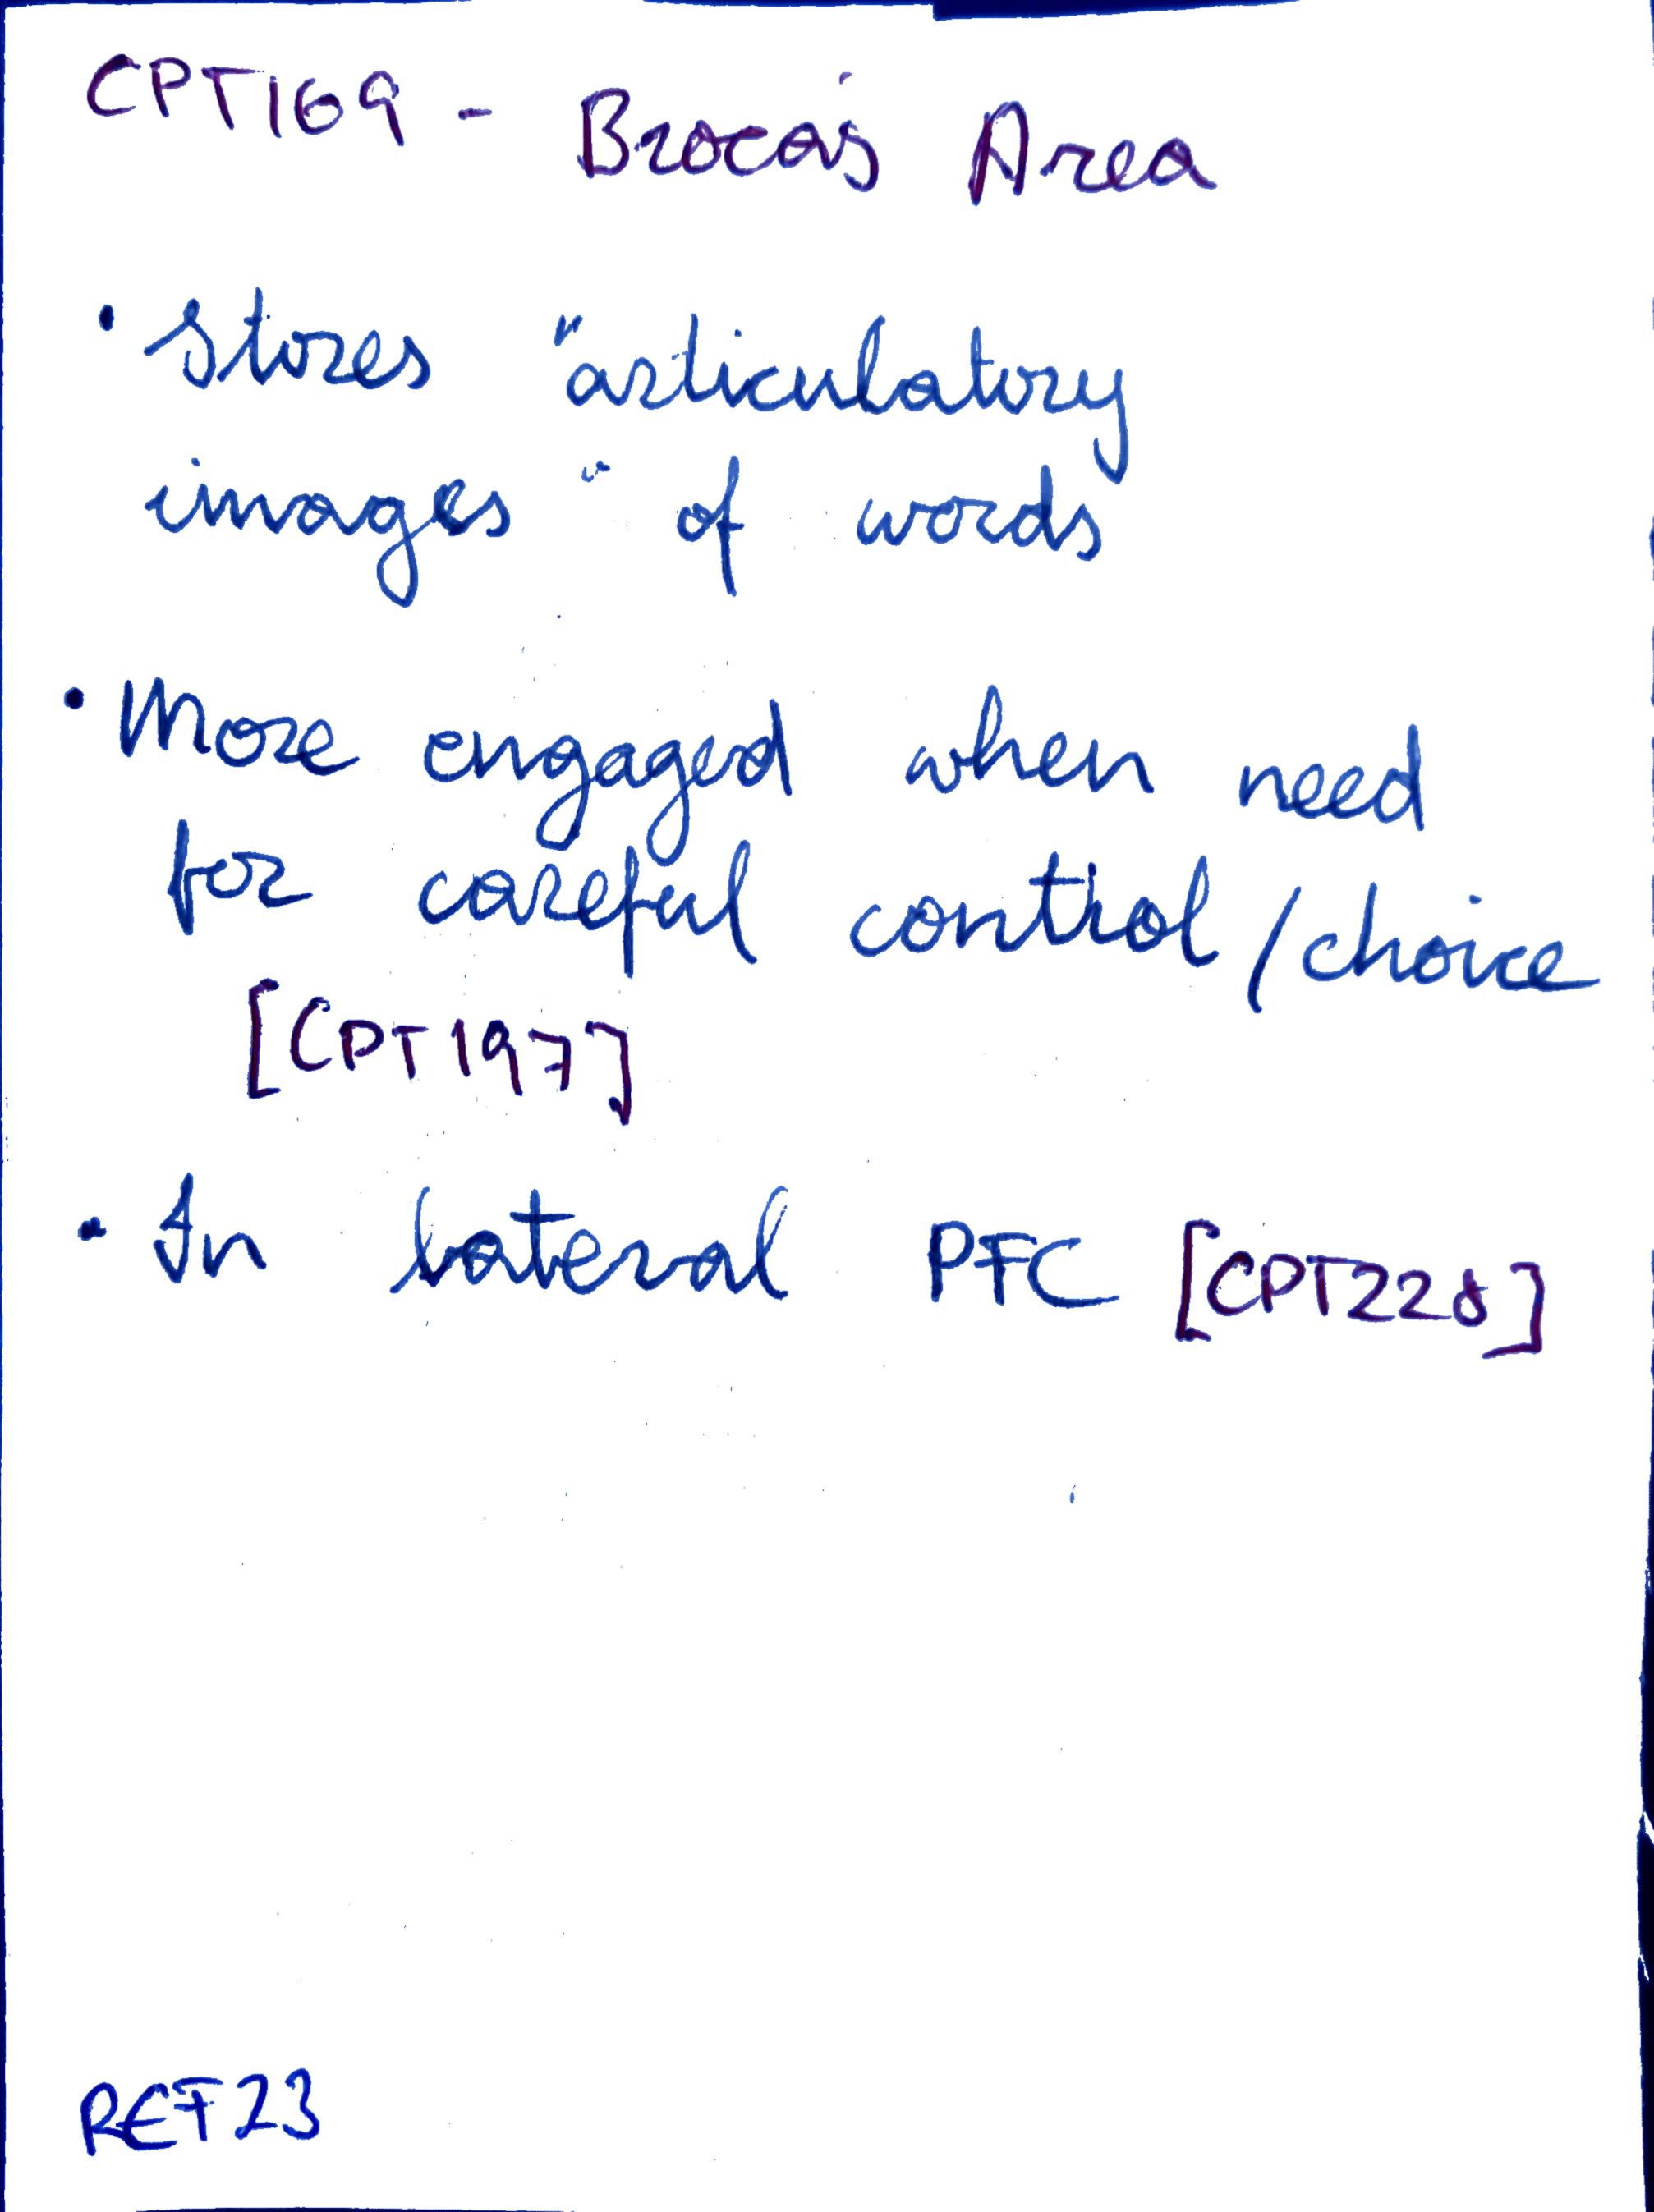 CPT169 - Broca's Area
• Stores "articulatory
images" of words
• More engaged when need
for careful control/choice
[CPT197]
• In lateral PFC [CPT228]
REF23